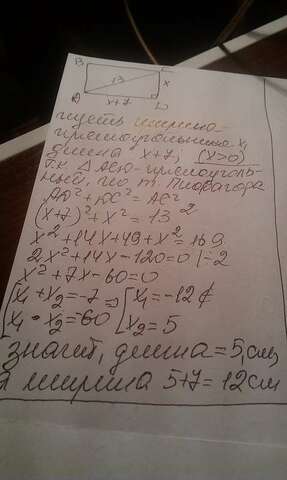 B C
13 x
A x+7 D
пусть ширина
прямоугольника x,
длина x+7, (x>0)
т.к. △ACD-прямоуголь-
ный, то т. Пифагора
AD²+DC²=AC²
(x+7)²+x²=13²
x²+14x+49+x²=169
2x²+14x-120=0 |÷2
x²+7x-60=0
x₁+x₂=-7 ⇒ x₁=-12 ∉
x₁·x₂=-60 x₂=5
значит, длина=5см,
а ширина 5+7=12см